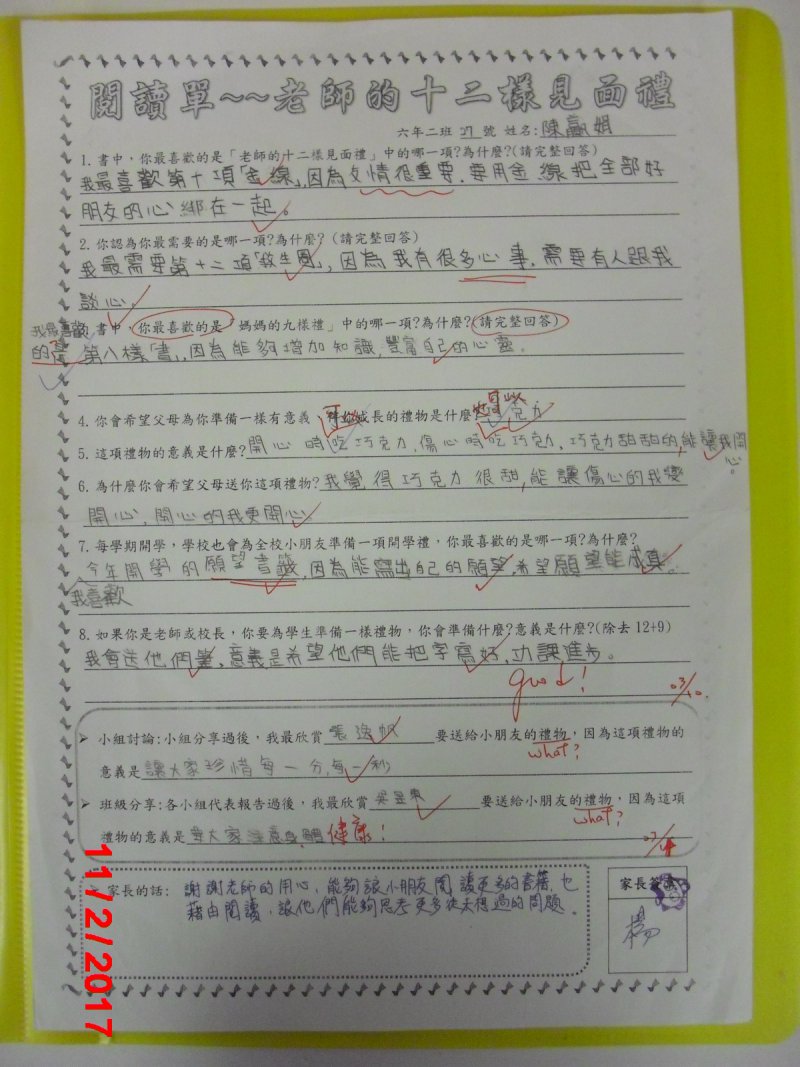 閱讀單~~老師的十二樣見面禮
六年二班 27 號 姓名: 陳嬴娟
1. 書中,你最喜歡的是「老師的十二樣見面禮」中的哪一項?為什麼?(請完整回答)
我最喜歡第十項「金線」,因為友情很重要.要用金線把全部好
朋友的心綁在一起。
2. 你認為你最需要的是哪一項?為什麼? (請完整回答)
我最需要第十二項「救生圈」,因為我有很多心事.需要有人跟我
談心.
書中,你最喜歡的是「媽媽的九樣禮」中的哪一項?為什麼?(請完整回答)
我最喜歡
的是 第八樣「書」,因為能夠增加知識,豐富自己的心靈.
4. 你會希望父母為你準備一樣有意義、伴你成長的禮物是什麼? 巧克力
5. 這項禮物的意義是什麼? 開心時吃巧克力,傷心時吃巧克力,巧克力甜甜的,能讓我開心。
6. 為什麼你會希望父母送你這項禮物? 我覺得巧克力很甜,能讓傷心的我變
開心,開心的我更開心
7. 每學期開學,學校也會為全校小朋友準備一項開學禮,你最喜歡的是哪一項?為什麼?
今年開學的願望書籤,因為能寫出自己的願望,希望願望能成真。
我喜歡
8. 如果你是老師或校長,你要為學生準備一樣禮物,你會準備什麼?意義是什麼?(除去 12+9)
我會送他們筆,意義是希望他們能把字寫好,功課進步。
good!
03/10.
➢ 小組討論:小組分享過後,我最欣賞 張逸帆 要送給小朋友的禮物,因為這項禮物的
what?
意義是 讓大家珍惜每一分,每一秒
➢ 班級分享:各小組代表報告過後,我最欣賞 要送給小朋友的禮物,因為這項
what?
禮物的意義是 要大家注意身體健康!
➢ 家長的話: 謝謝老師的用心,能夠讓小朋友閱讀更多的書籍,也
藉由閱讀,讓他們能夠思考更多從未想過的問題。
家長簽
楊
11/2/2017